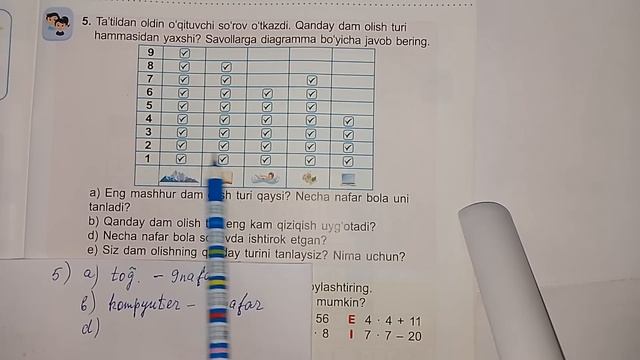 5. Ta'tildan oldin o'qituvchi so'rov o'tkazdi. Qanday dam olish turi
hammasidan yaxshi? Savollarga diagramma bo'yicha javob bering.
9
8
7
6
5
4
3
2
1
a) Eng mashhur dam turi qaysi? Necha nafar bola uni
tanladi?
b) Qanday dam olish eng kam qiziqish uyg'otadi?
d) Necha nafar bola ishtirok etgan?
e) Siz dam olishning turini tanlaysiz? Nima uchun?
5) a) tog̃. - 9
b) kompyuter -
d)
mumkin?
56 E 4 · 4 + 11
· 8 I 7 · 7 – 20